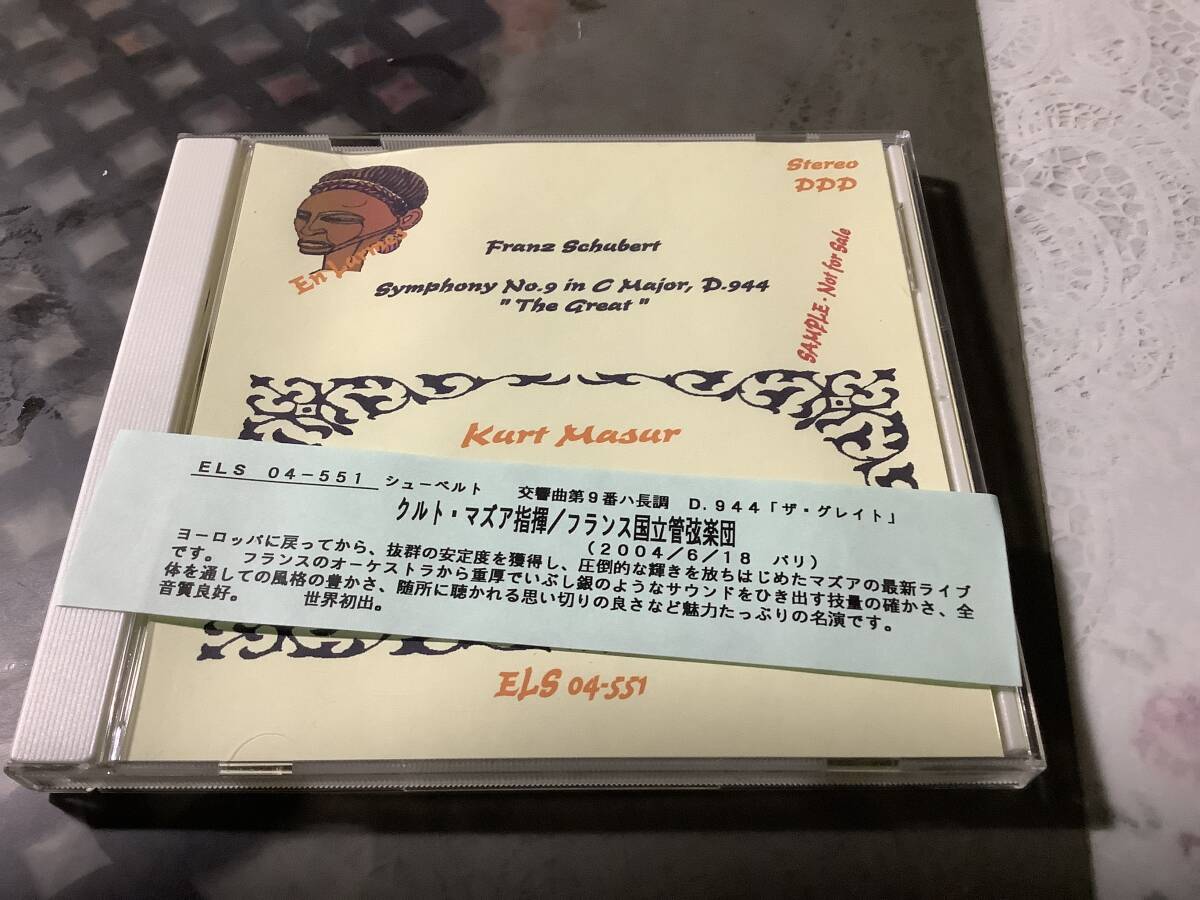 Stereo
DDD
En Larmes
Franz Schubert
Symphony No.9 in C Major, D.944
"The Great"
SAMPLE・Not for Sale
Kurt Masur
ELS 04−551 シューベルト 交響曲第9番ハ長調 D.944「ザ・グレイト」
クルト・マズア指揮/フランス国立管弦楽団
(2004/6/18 パリ)
ヨーロッパに戻ってから、抜群の安定度を獲得し、圧倒的な輝きを放ちはじめたマズアの最新ライブ
です。 フランスのオーケストラから重厚でいぶし銀のようなサウンドをひき出す技量の確かさ、全
体を通しての風格の豊かさ、随所に聴かれる思い切りの良さなど魅力たっぷりの名演です。
音質良好。 世界初出。
ELS 04-551